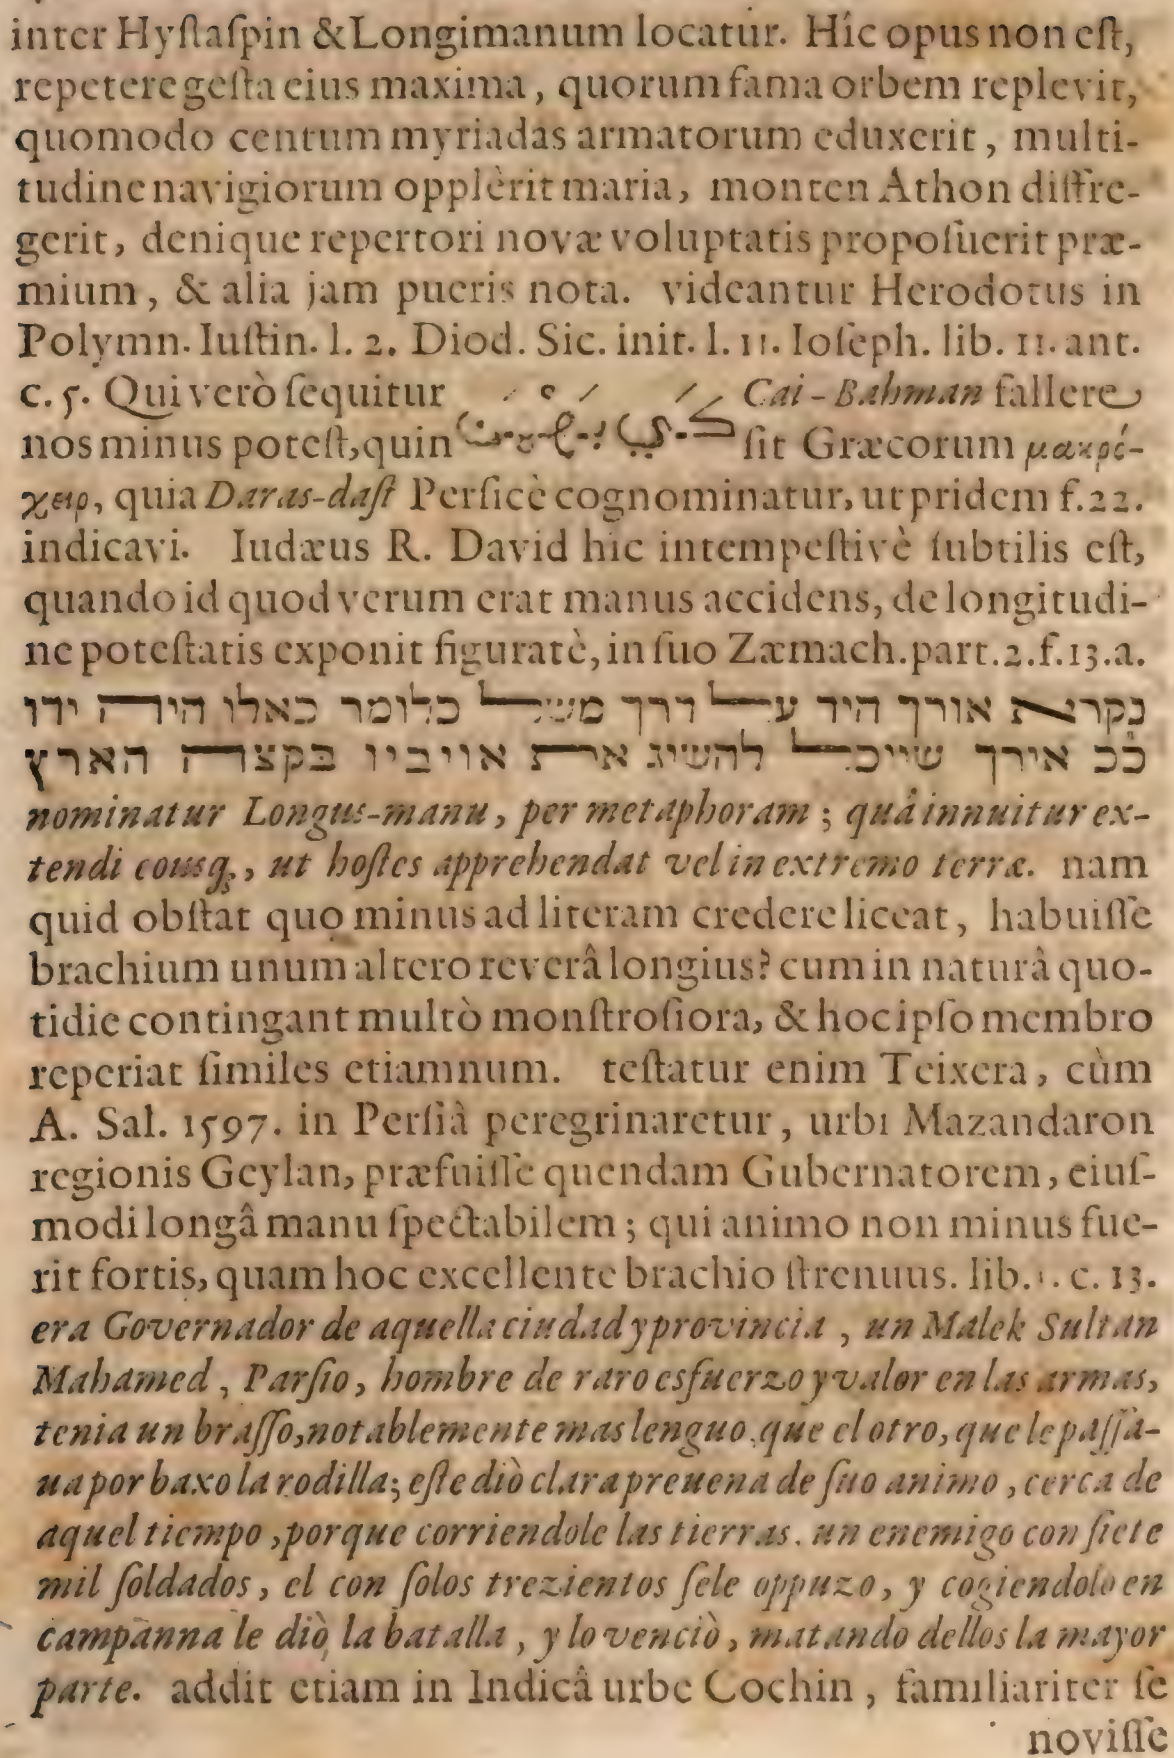 inter Hyſtaſpin & Longimanum locatur. Hîc opus non eſt,
repetere geſta eius maxima, quorum fama orbem replevit,
quomodo centum myriadas armatorum eduxerit, multi-
tudine navigiorum opplèrit maria, monten Athon diffre-
gerit, denique repertori novæ voluptatis propoſuerit præ-
mium, & alia jam pueris nota. videantur Herodotus in
Polymn. Iuſtin. l. 2. Diod. Sic. init. l. 11. Ioſeph. lib. 11. ant.
c. 5. Qui verò ſequitur Cai-Bahman fallere
nos minus poteſt, quin ſit Græcorum μακρό-
χειρ, quia Daras-daſt Perſicè cognominatur, ut pridem f. 22.
indicavi. Iudæus R. David hic intempeſtivè ſubtilis eſt,
quando id quod verum erat manus accidens, de longitudi-
ne poteſtatis exponit figuratè, in ſuo Zæmach. part. 2. f. 13. a.
נקראת אורך היד על דרך משל כלומר כאלו היה ידו
כ֗כ אירך שייכל להשיג את אויביו בקצה הארץ
nominatur Longus-manu, per metaphoram; quâ innuitur ex-
tendi eousq;, ut hoſtes apprehendat vel in extremo terræ. nam
quid obſtat quo minus ad literam credere liceat, habuiſſe
brachium unum altero reverâ longius? cum in naturâ quo-
tidie contingant multò monſtroſiora, & hoc ipſo membro
reperiat ſimiles etiamnum. teſtatur enim Teixera, cùm
A. Sal. 1597. in Perſiâ peregrinaretur, urbi Mazandaron
regionis Geylan, præfuiſſe quendam Gubernatorem, eiuſ-
modi longâ manu ſpectabilem; qui animo non minus fue-
rit fortis, quam hoc excellente brachio ſtrenuus. lib. 1. c. 13.
era Governador de aquella ciudad y provincia, un Malek Sultan
Mahamed, Parſio, hombre de raro esfuerzo y valor en las armas,
tenia un braſſo, notablemente mas lenguo, que el otro, que le paſſa-
ua por baxo la rodilla; eſte diò clara preuena de ſuo animo, cerca de
aquel tiempo, porque corriendole las tierras. un enemigo con ſiete
mil ſoldados, el con ſolos trezientos ſele oppuzo, y cogiendolo en
campanna le diò la batalla, y lo venciò, matando dellos la mayor
parte. addit etiam in Indicâ urbe Cochin, familiariter ſe
noviſſe